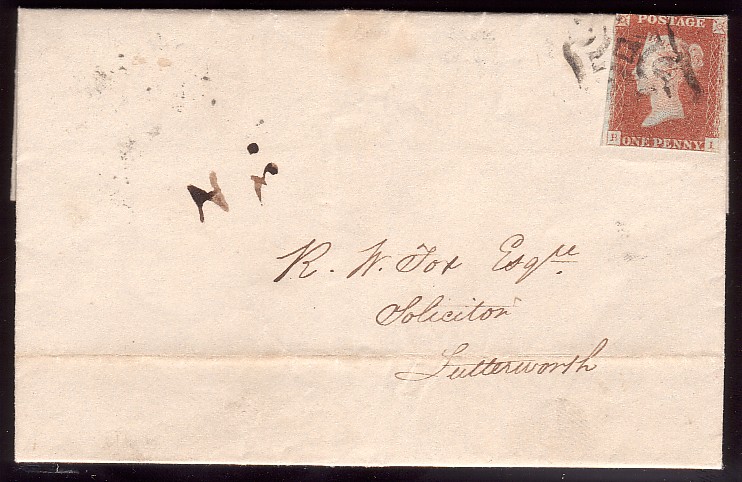 POSTAGE
ONE PENNY
I
R. W. Fox Esqre
Solicitor
Lutterworth